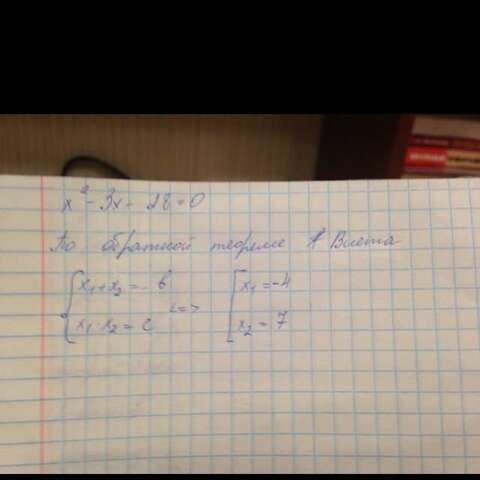 x² - 3x - 28 = 0
По обратной теореме Виета
x₁+x₂ = -b <=> x₁ = -4
x₁·x₂ = c x₂ = 7